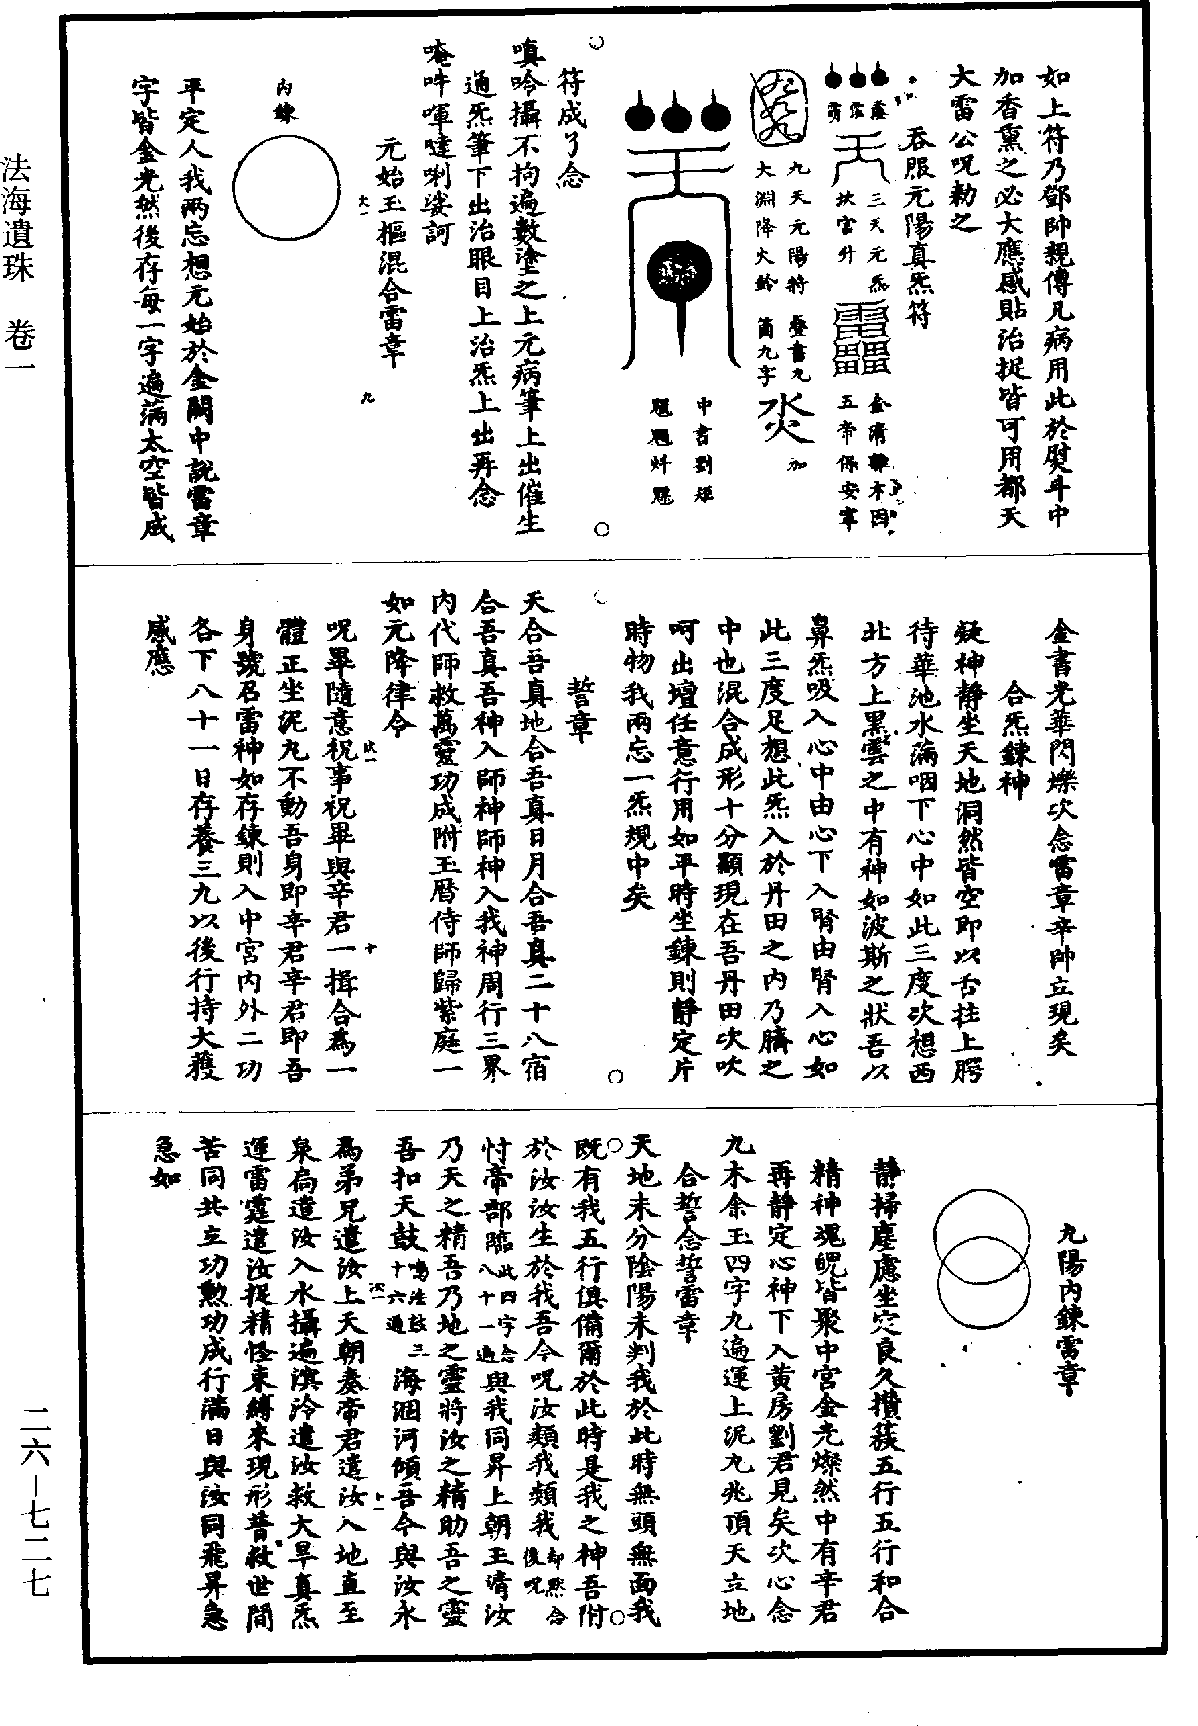 法海遺珠　卷一
如上符乃鄧帥親傳凡病用此於熨斗中
加香熏之必大應感貼治捉皆可用都天
大雷公呪勅之
吞服元陽真炁符
三天元炁
坎宮升
金清離木囚
五帝保安寧
九天元陽將
大淵降火鈴
疊書九
箇九字
加
中書劉炬
符成了念
嗔唅攝不拘遍數塗之上元病筆上出催生
通炁筆下出治眼目上治炁上出再念
唵吽㖷噠唎娑訶
元始玉樞混合雷章
大一
九
內鍊
平定人我兩忘想元始於金闕中說雷章
字皆金光然後存每一字遍滿太空皆成
金書光華閃爍次念雷章辛帥立現矣
合炁鍊神
凝神靜坐天地洞然皆空即以舌拄上腭
待華池水滿咽下心中如此三度次想西
北方上黑雲之中有神如波斯之狀吾以
鼻炁吸入心中由心下入腎由腎入心如
此三度足想此炁入於丹田之內乃臍之
中也混合成形十分顯現在吾丹田次吹
呵出壇任意行用如平時坐鍊則靜定片
時物我兩忘一炁規中矣
誓章
天合吾真地合吾真日月合吾真二十八宿
合吾真吾神入師神師神入我神周行三界
內代師救萬靈功成附玉曆侍師歸紫庭一
如元降律令
呪畢隨意祝事祝畢與辛君一揖合為一
體正坐泥丸不動吾身即辛君辛君即吾
身號召雷神如存鍊則入中宮內外二功
各下八十一日存養三九以後行持大獲
感應
九陽內鍊雷章
靜掃塵慮坐定良久攢簇五行五行和合
精神魂魄皆聚中宮金光燦然中有辛君
再靜定心神下入黃房劉君見矣次心念
九木余玉四字九遍運上泥丸兆頂天立地
合誓念誓雷章
天地未分陰陽未判我於此時無頭無面我
既有我五行俱備爾於此時是我之神吾附
於汝汝生於我吾今呪汝類我類我却默合後呪
忖帝部臨此四字念八十一遍與我同昇上朝玉清汝
乃天之精吾乃地之靈將汝之精助吾之靈
吾扣天鼓鳴法鼓三十六通海涸河傾吾今與汝永
為弟兄遣汝上天朝奏帝君遣汝入地直至
泉扃遣汝入水攝遍溟泠遣汝救大旱真炁
運雷霆遣汝捉精怪束縛來現形普救世間
苦同共立功勲功成行滿日與汝同飛昇急
急如
二六—七二七